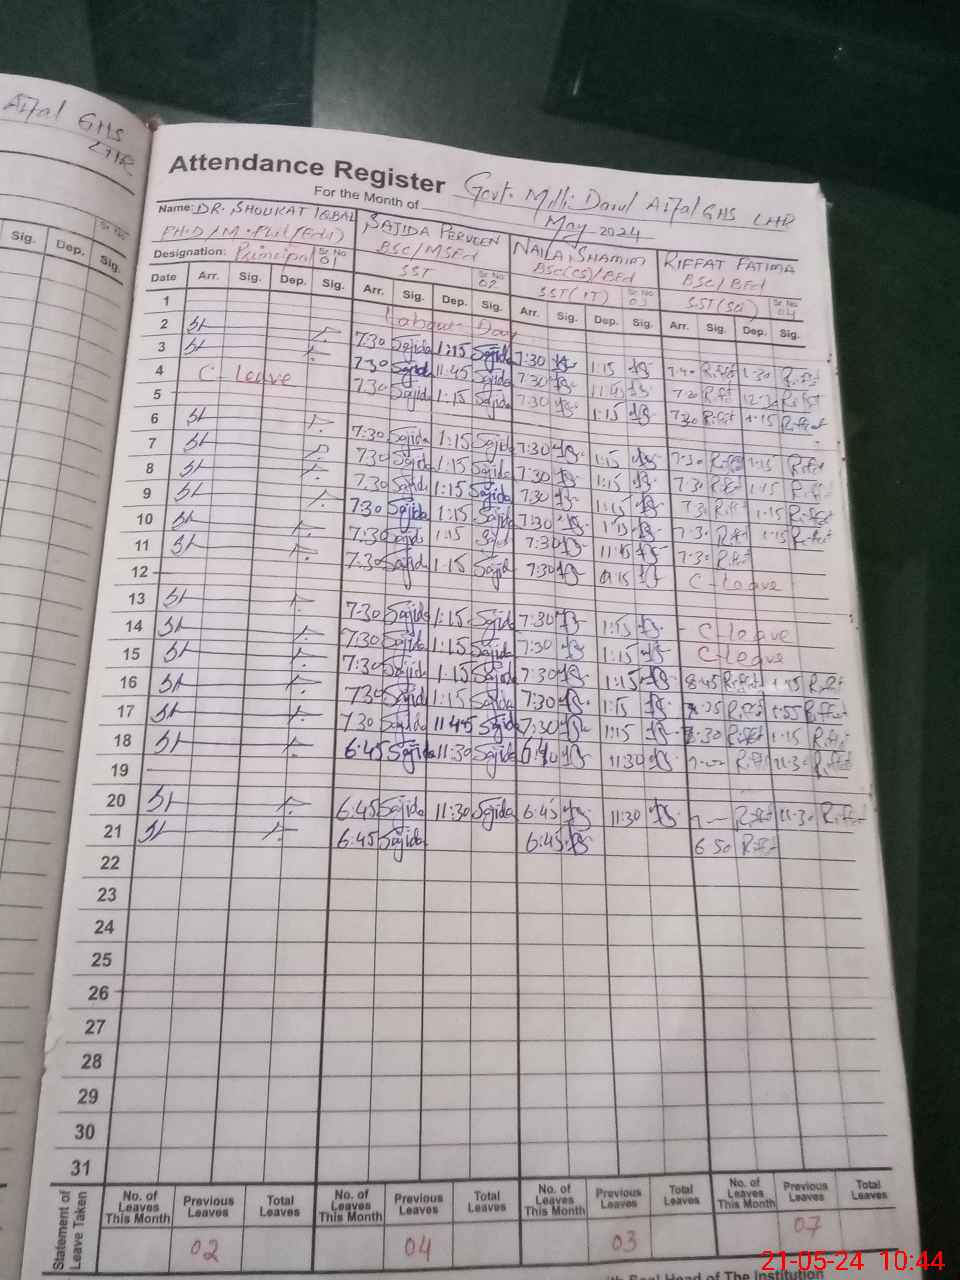 Aital GHS
LHR
Sig. Dep. Sr. No Sig.
Attendance Register Govt. Milli Darul Aitfal GHS LHR
For the Month of May-2024
Name: DR. SHOUKAT IQBAL SAJIDA PERVEEN NAILA SHAMIM RIFFAT FATIMA
PH.D/M.Phil(Edu) BSC/MSEd BSC(CS)/BEd BSC/BEd
Designation: Principal Sr. No 01 SST Sr. No 02 SST(IT) Sr. No 03 SST(Sc) Sr. No 04
Date Arr. Sig. Dep. Sig. Arr. Sig. Dep. Sig. Arr. Sig. Dep. Sig. Arr. Sig. Dep. Sig.
1 Labour Day
2 7:30 Sajida 1:15 Sajida 7:30 1:15 7:40 Riffat 1:30 Riffat
3 7:30 Sajida 11:45 Sajida 7:30 11:45 7:30 Riffat 12:30 Riffat
4 C leave 7:30 Sajida 1:15 Sajida 7:30 1:15 7:30 Riffat 1:15 Riffat
5
6 7:30 Sajida 1:15 Sajida 7:30 1:15 7:30 Riffat 1:15 Riffat
7 7:30 Sajida 1:15 Sajida 7:30 1:15 7:30 Riffat 1:15 Riffat
8 7:30 Sajida 1:15 Sajida 7:30 1:15 7:30 Riffat 1:15 Riffat
9 7:30 Sajida 1:15 Sajida 7:30 1:15 7:30 Riffat 1:15 Riffat
10 7:30 Sajida 1:15 Sajida 7:30 11:45 7:30 Riffat
11 7:30 Sajida 1:15 Sajida 7:30 C-leave
12
13 7:30 Sajida 1:15 Sajida 7:30 1:15 C-leave
14 7:30 Sajida 1:15 Sajida 7:30 1:15 C-leave
15 7:30 Sajida 1:15 Sajida 7:30 1:15 8:45 Riffat Riffat
16 7:30 Sajida 1:15 Sajida 7:30 1:15 Riffat 1:55 Riffat
17 7:30 Sajida 11:45 Sajida 7:30 1:15 Riffat 1:15 Riffat
18 6:45 Sajida 11:30 Sajida 11:30 Riffat 11:30 Riffat
19
20 6:45 Sajida 11:30 Sajida 6:45 11:30 Riffat 11:30 Riffat
21 6:45 Sajida 6:45 6 50 Riffat
22
23
24
25
26
27
28
29
30
31
Statement of Leave Taken No. of Leaves This Month Previous Leaves Total Leaves No. of Leaves This Month Previous Leaves Total Leaves No. of Leaves This Month Previous Leaves Total Leaves No. of Leaves This Month Previous Leaves Total Leaves
02 04 03 07
Seal Head of The Institution
21-05-24 10:44